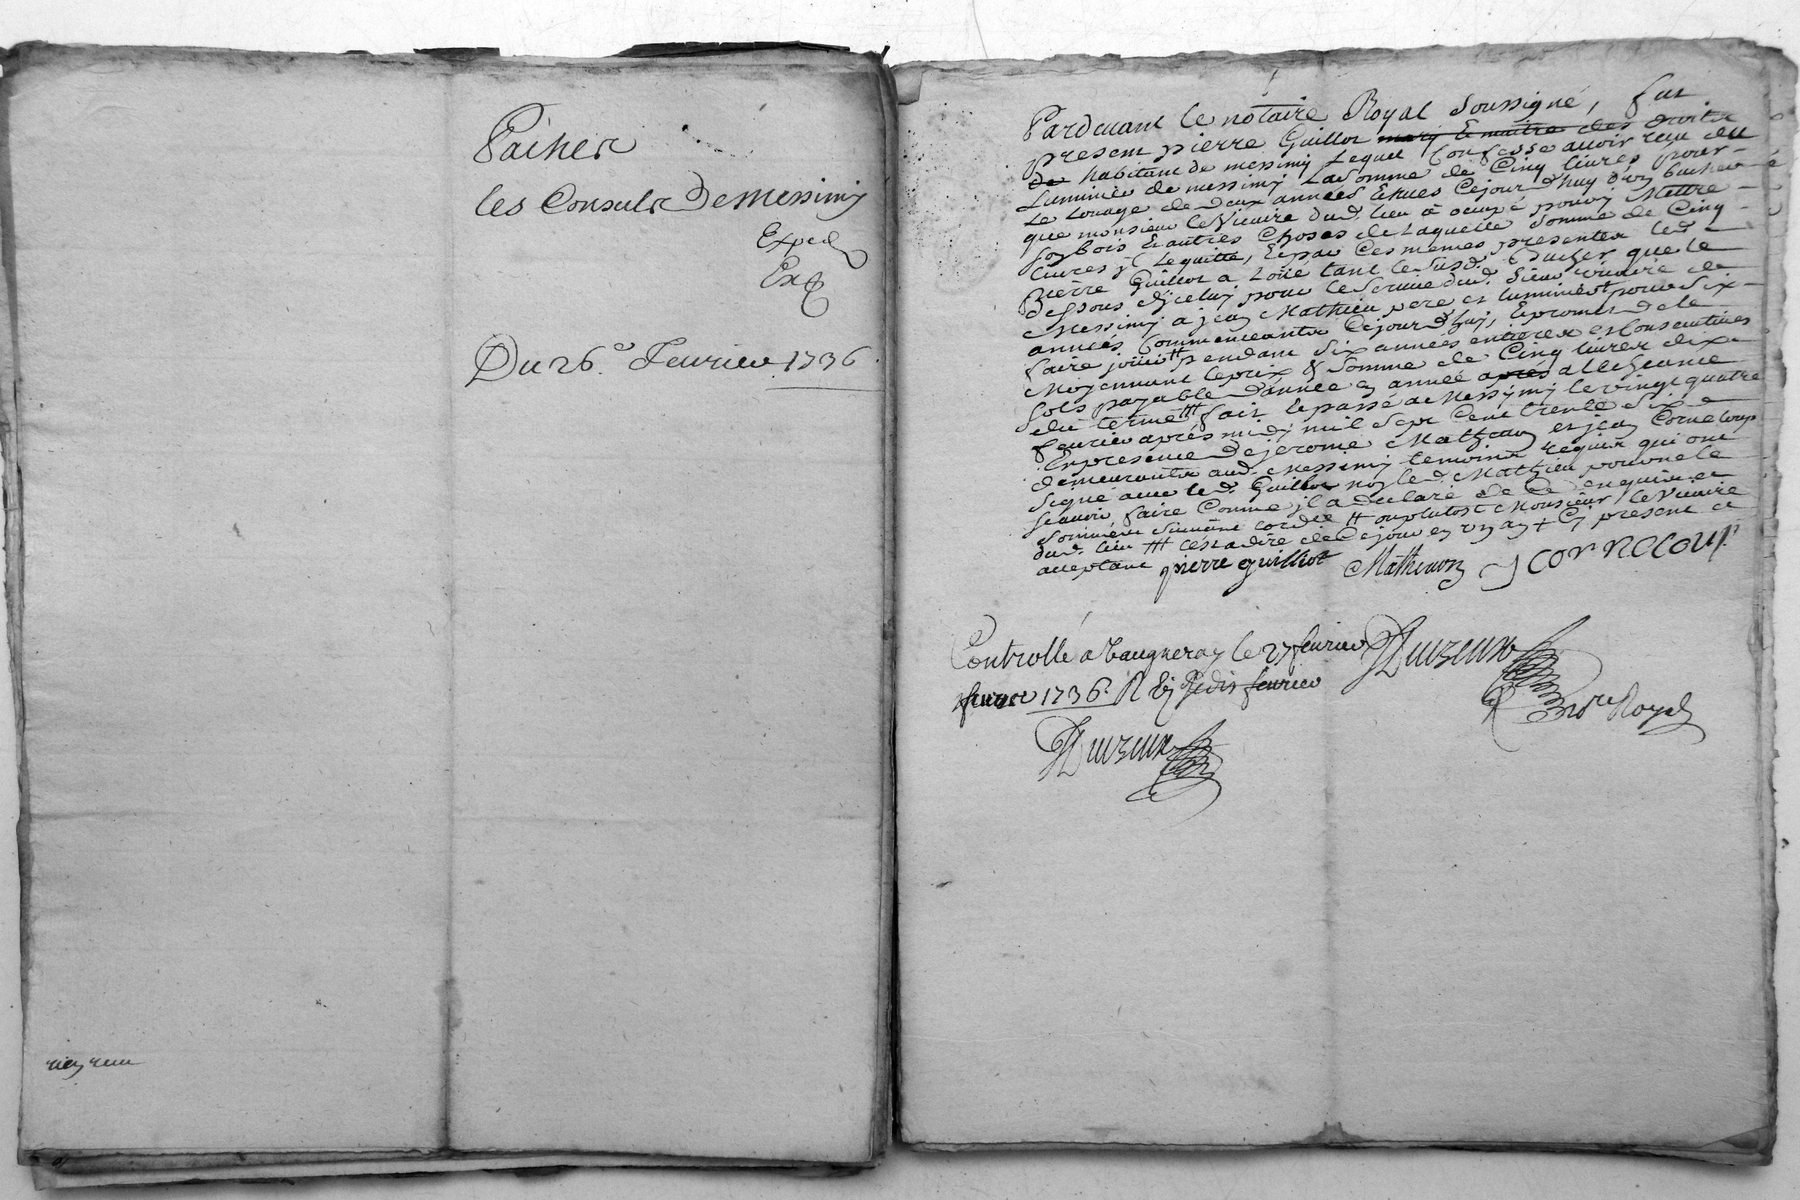 Paiher
les Consuls De Messimy
Exped
Ex
Du 26e Feurier 1736
rien receu
Pardeuant le notaire Royal Soussigné, fut
present pierre Guillot mary & maitre des droits
de habitant de messimy Lequel Confesse auoir receu des
Luminier de messimy La Somme de Cinq liures pour
Le Louage de deux années Echues Cejour d'huy d'un bucher
que monsieur le Vicaire dud. lieu à ocupé pour y Mettre
Son bois & autres Choses de Laquelle Somme de Cinq
liures il Le quitte, & par Ces mémes presentes led.
Pierre Guillot a Loüé tant le Susd. Bucher que le
dessous d'jceluy pour le Seruice dud. Sieur vicaire de
Messimy à jean Mathieu pere et luminier pour Six
années Commencantes Cejour d'huy, & promet de le
faire joüir pendant Six années entieres et Consecutiues
Moyennant le prix & Somme de Cinq liures dix
Sols payable d'année en année après a l'Echeance
du terme fait & passé a Messimy le vingt quatre
feurier après midy mil Sept Cent trente Six
En presence de jerome Mathieu et jean Corneloup
demeurants aud. Messimy temoins requis qui ont
Signé auec le d. Guillot non le d. Mathieu pour ne le
Scauoir faire Comme jl a declaré de Ce enquis et
Sommé ou plutost Monsieur le Vicaire
dud. lieu c'est a dire de Ce jour en un an + Cy present et
acceptant pierre guilliot Mathieu J corneloup
Controllé a Vaugneray le 27 feurier
feurier 1736 R Six feurier
Nore Royal